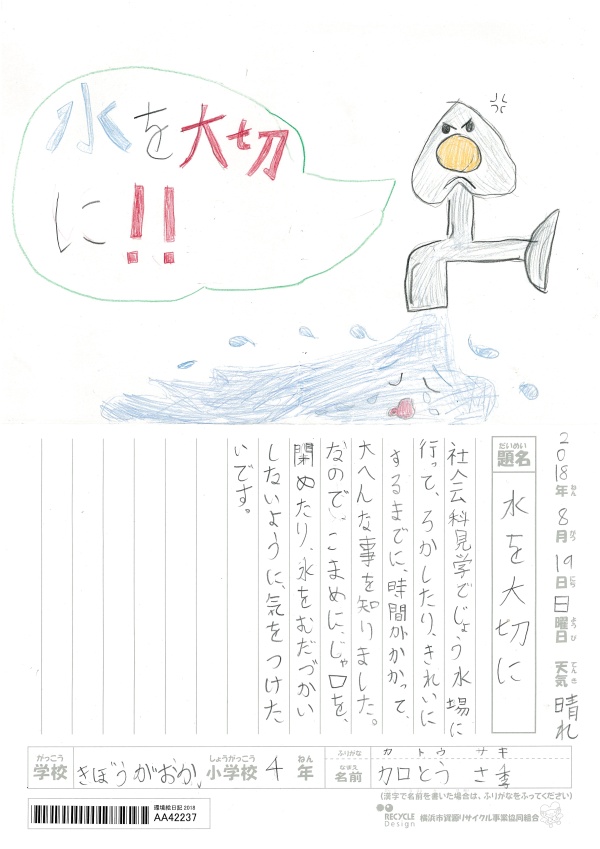 水を大切
に!!
2018年ねん 8月がつ 19日にち 日曜日ようび 天気てんき 晴れ
だいめい
題名 水を大切に
社会科見学でじょう水場に
行って、ろかしたり、きれいに
するまでに、時間がかかって、
大へんな事を知りました。
なので、こまめに、じゃ口を、
閉めたり、水をむだづかい
しないように、気をつけた
いです。
がっこう しょうがっこう ねん
学校 きぼうがおか 小学校 4 年
ふりがな カトウ
なまえ
名前 加とう さ季
(漢字で名前を書いた場合は、ふりがなをふってください)
環境絵日記 2018
AA42237
RECYCLE
Design
横浜市資源リサイクル事業協同組合